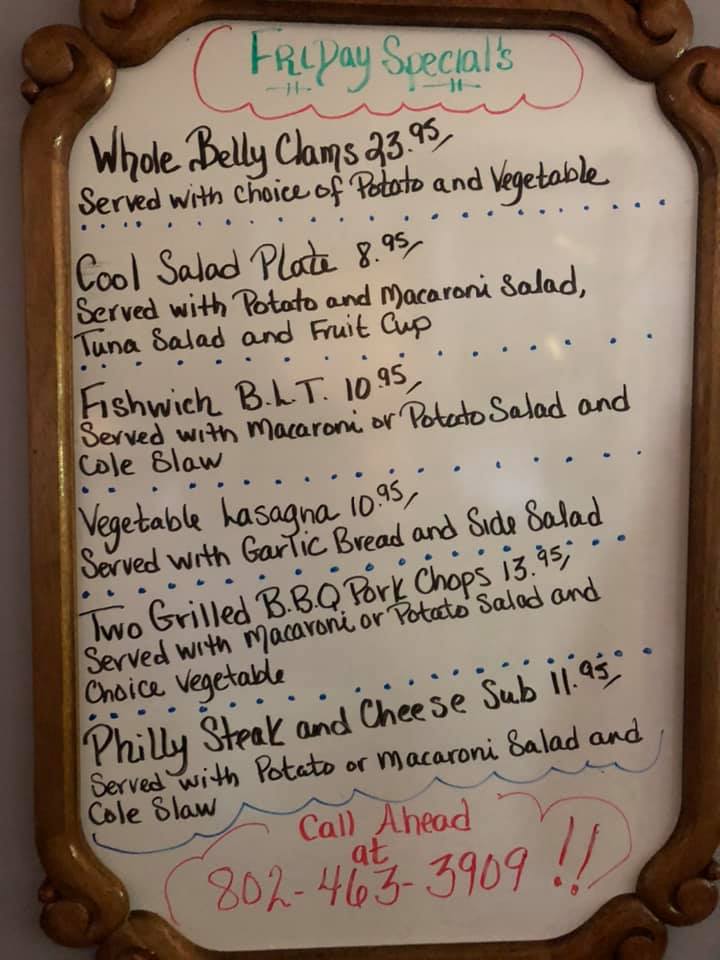 FRiDay Special's
Whole Belly Clams 23.95/
Served with choice of Potato and Vegetable
Cool Salad Plate 8.95/
Served with Potato and Macaroni Salad,
Tuna Salad and Fruit Cup
Fishwich B.L.T. 10.95/
Served with Macaroni or Potato Salad and
Cole Slaw
Vegetable Lasagna 10.95/
Served with Garlic Bread and Side Salad
Two Grilled B.B.Q Pork Chops 13.95/
Served with Macaroni or Potato Salad and
Choice Vegetable
Philly Steak and Cheese Sub 11.95/
Served with Potato or Macaroni Salad and
Cole Slaw
Call Ahead
at
802-463-3909!!